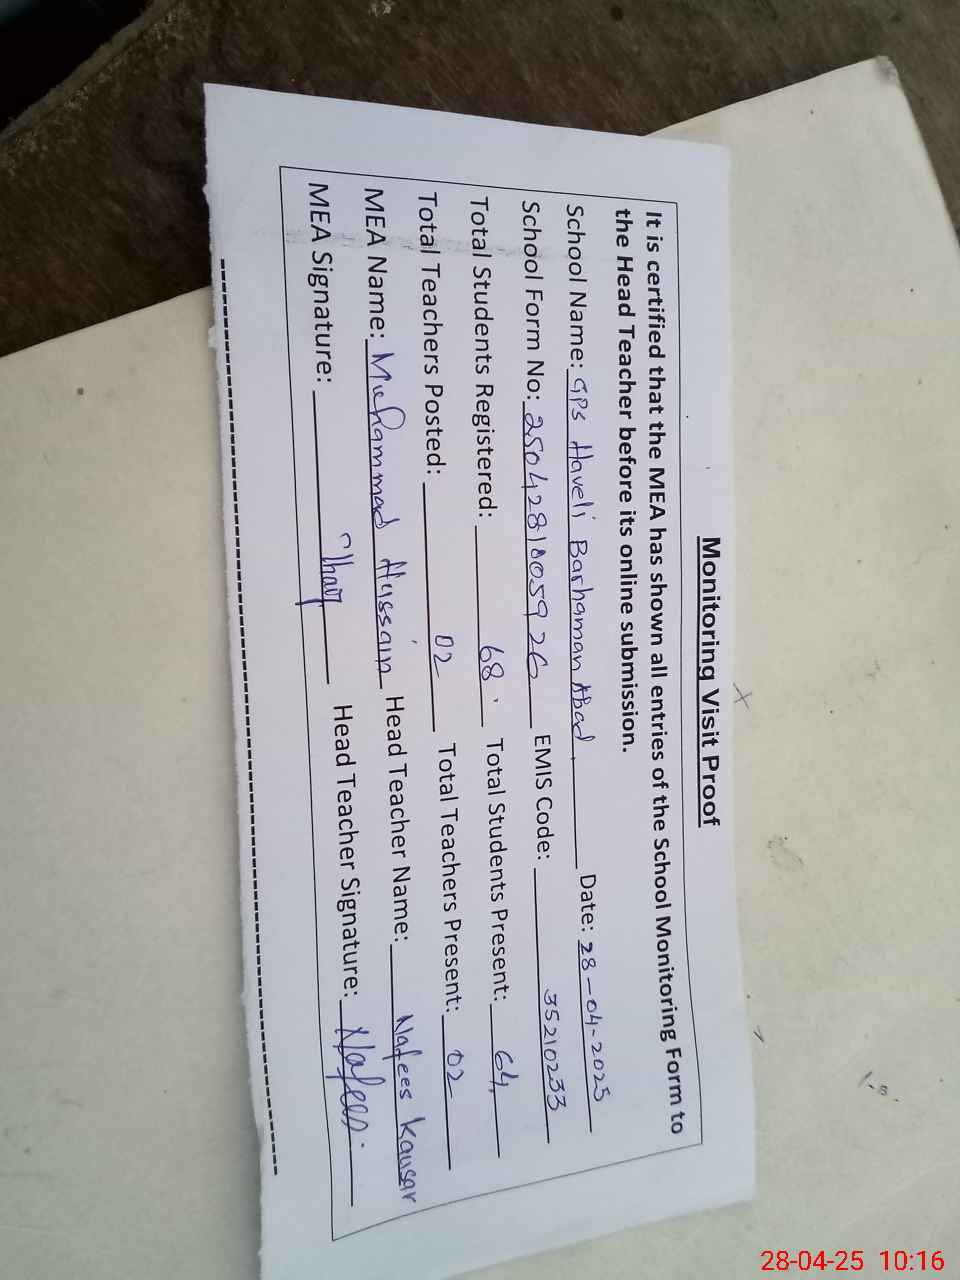 Monitoring Visit Proof
It is certified that the MEA has shown all entries of the School Monitoring Form to
the Head Teacher before its online submission.
School Name: GPS Haveli Barhaman Abad. Date: 28-04-2025
School Form No: 2504281005926 EMIS Code: 35210233
Total Students Registered: 68. Total Students Present: 64
Total Teachers Posted: 02 Total Teachers Present: 02
MEA Name: Muhammad Hussain Head Teacher Name: Nafees Kausar
MEA Signature: Head Teacher Signature: Nafees.
28-04-25 10:16